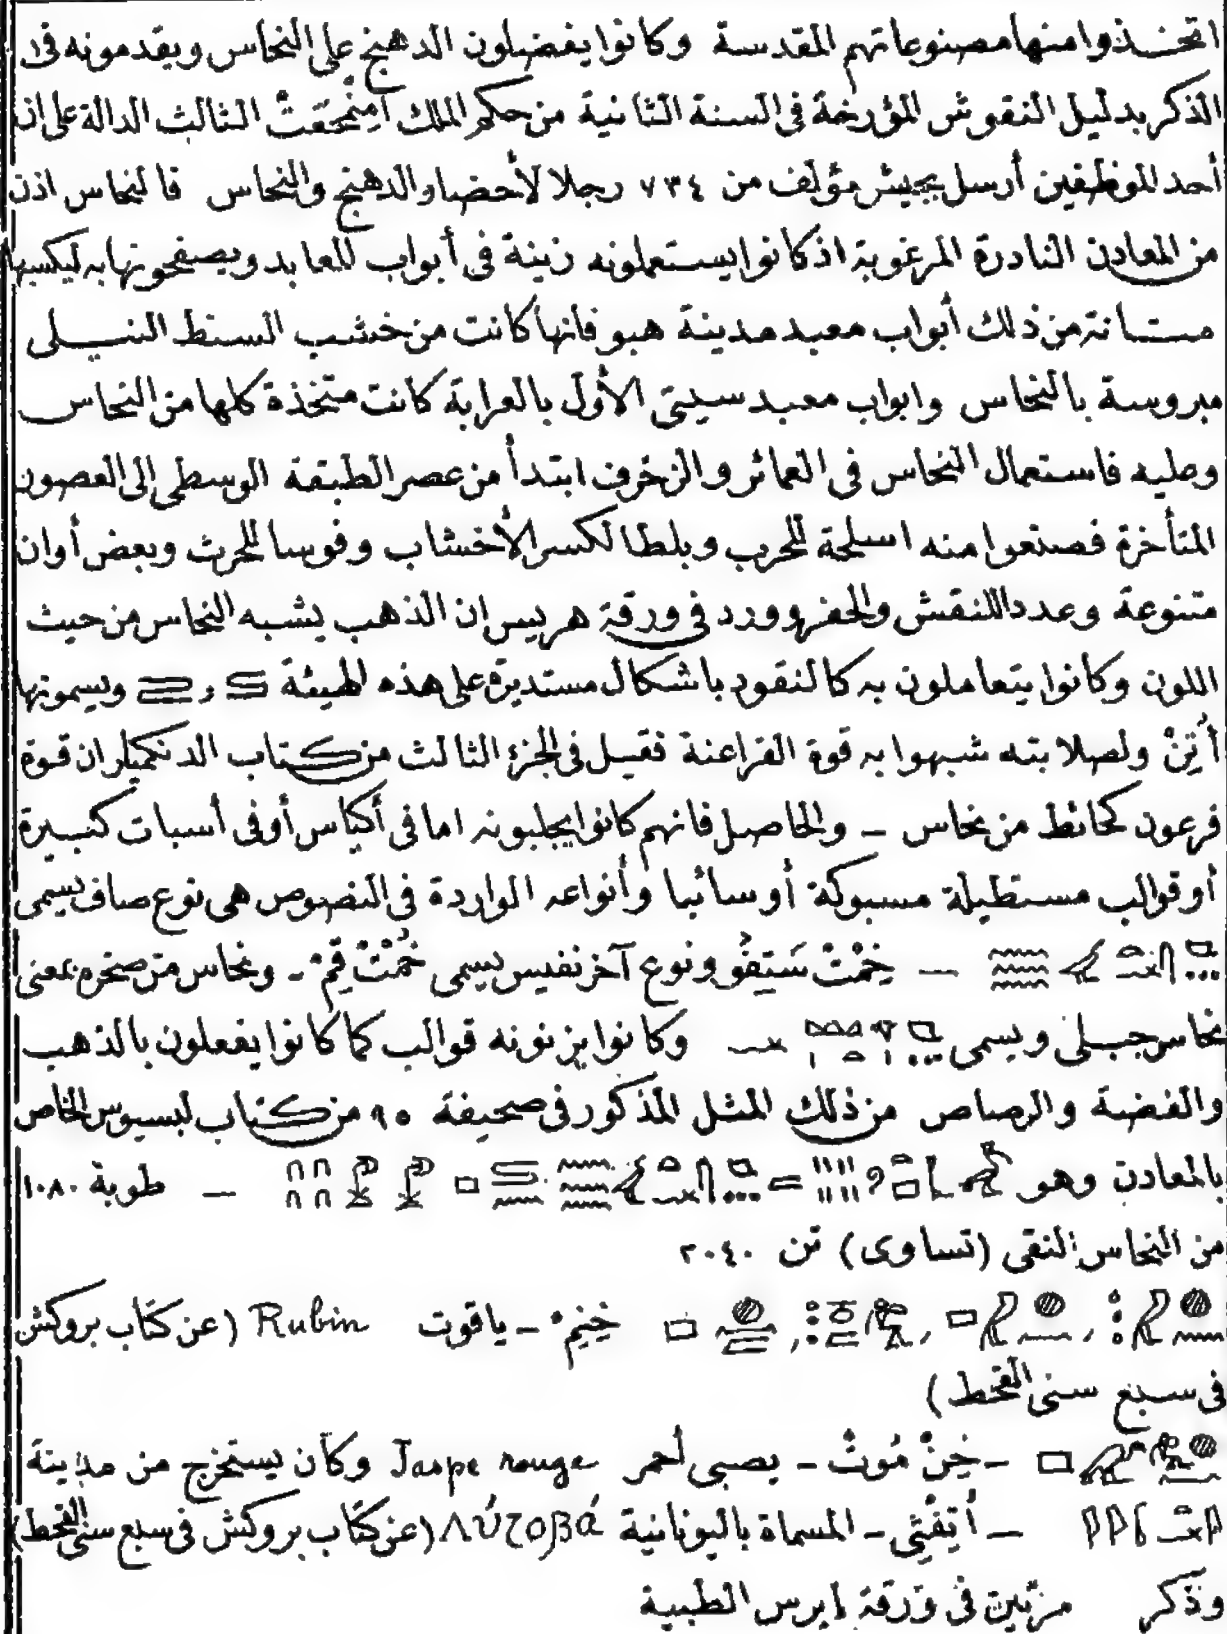 اتخذوا منها مصنوعاتهم المقدسة وكانوا يفضلون الدهنج على النحاس ويقدمونه فى
الذكر بدليل النقوش المؤرخة فى السنة الثانية من حكم الملك أمِنْمحَعَتْ الثالث الدالة على ان
أحد الموظفين أرسل بجيش مؤلف من ٧٣٤ رجلا لأحضار الدهنج والنحاس فالنحاس اذن
من المعادن النادرة المرغوبة اذ كانوا يستعملونه زينة فى أبواب المعابد ويصفحونها به ليكسبها
متانة من ذلك أبواب معبد مدينة هبو فانها كانت من خشب السنط النيلى
مبروسة بالنحاس وابواب معبد سيتى الأول بالعرابة كانت متخذة كلها من النحاس
وعليه فاستعمال النحاس فى العمائر والزخرف ابتدأ من عصر الطبقة الوسطى الى العصور
المتأخرة فصنعوا منه اسلحة للحرب وبلطا لكسر الأخشاب وفوسا للحرث وبعض أوان
متنوعة وعددا للنقش والحفر وورد فى ورقة هريس ان الذهب يشبه النحاس من حيث
اللون وكانوا يتعاملون به كالنقود باشكال مستديرة على هذه الهيئة و ويسمونها
أُتِنْ ولصلابته شبهوا به قوة الفراعنة فقيل فى الجزء الثالث من كتاب الدنكميلر ان قوة
فرعون كحائط من نحاس - والحاصل فانهم كانوا يجلبونه اما فى أكياس أو فى أسبات كبيرة
أو قوالب مستطيلة مسبوكة أو سائبا وأنواعه الواردة فى النصوص هى نوع صاف يسمى
— خِمْتْ سَتِفُو ونوع آخر نفيس يسمى خُمْتْ قِمْ - ونحاس من صخره بمعنى
نحاس جبلى ويسمى — وكانوا يزنونه قوالب كما كانوا يفعلون بالذهب
والفضة والرصاص من ذلك المثل المذكور فى صحيفة ٩٥ من كتاب لبسيوس الخاص
بالمعادن وهو = — طوبة ١٠٨٠
من النحاس النقى (تساوى) تن ٢٠٤٠
خِنِم - ياقوت Rubin (عن كتاب بروكش
فى سبع سنى القحط)
- خِنْ مُوتْ - يصبى أحمر Jaspe rouge وكان يستخرج من مدينة
— أُتِفْتِى - المسماة باليونانية (عن كتاب بروكش فى سبع سنى القحط)
وذكر مرتين فى ورقة ابرس الطبية